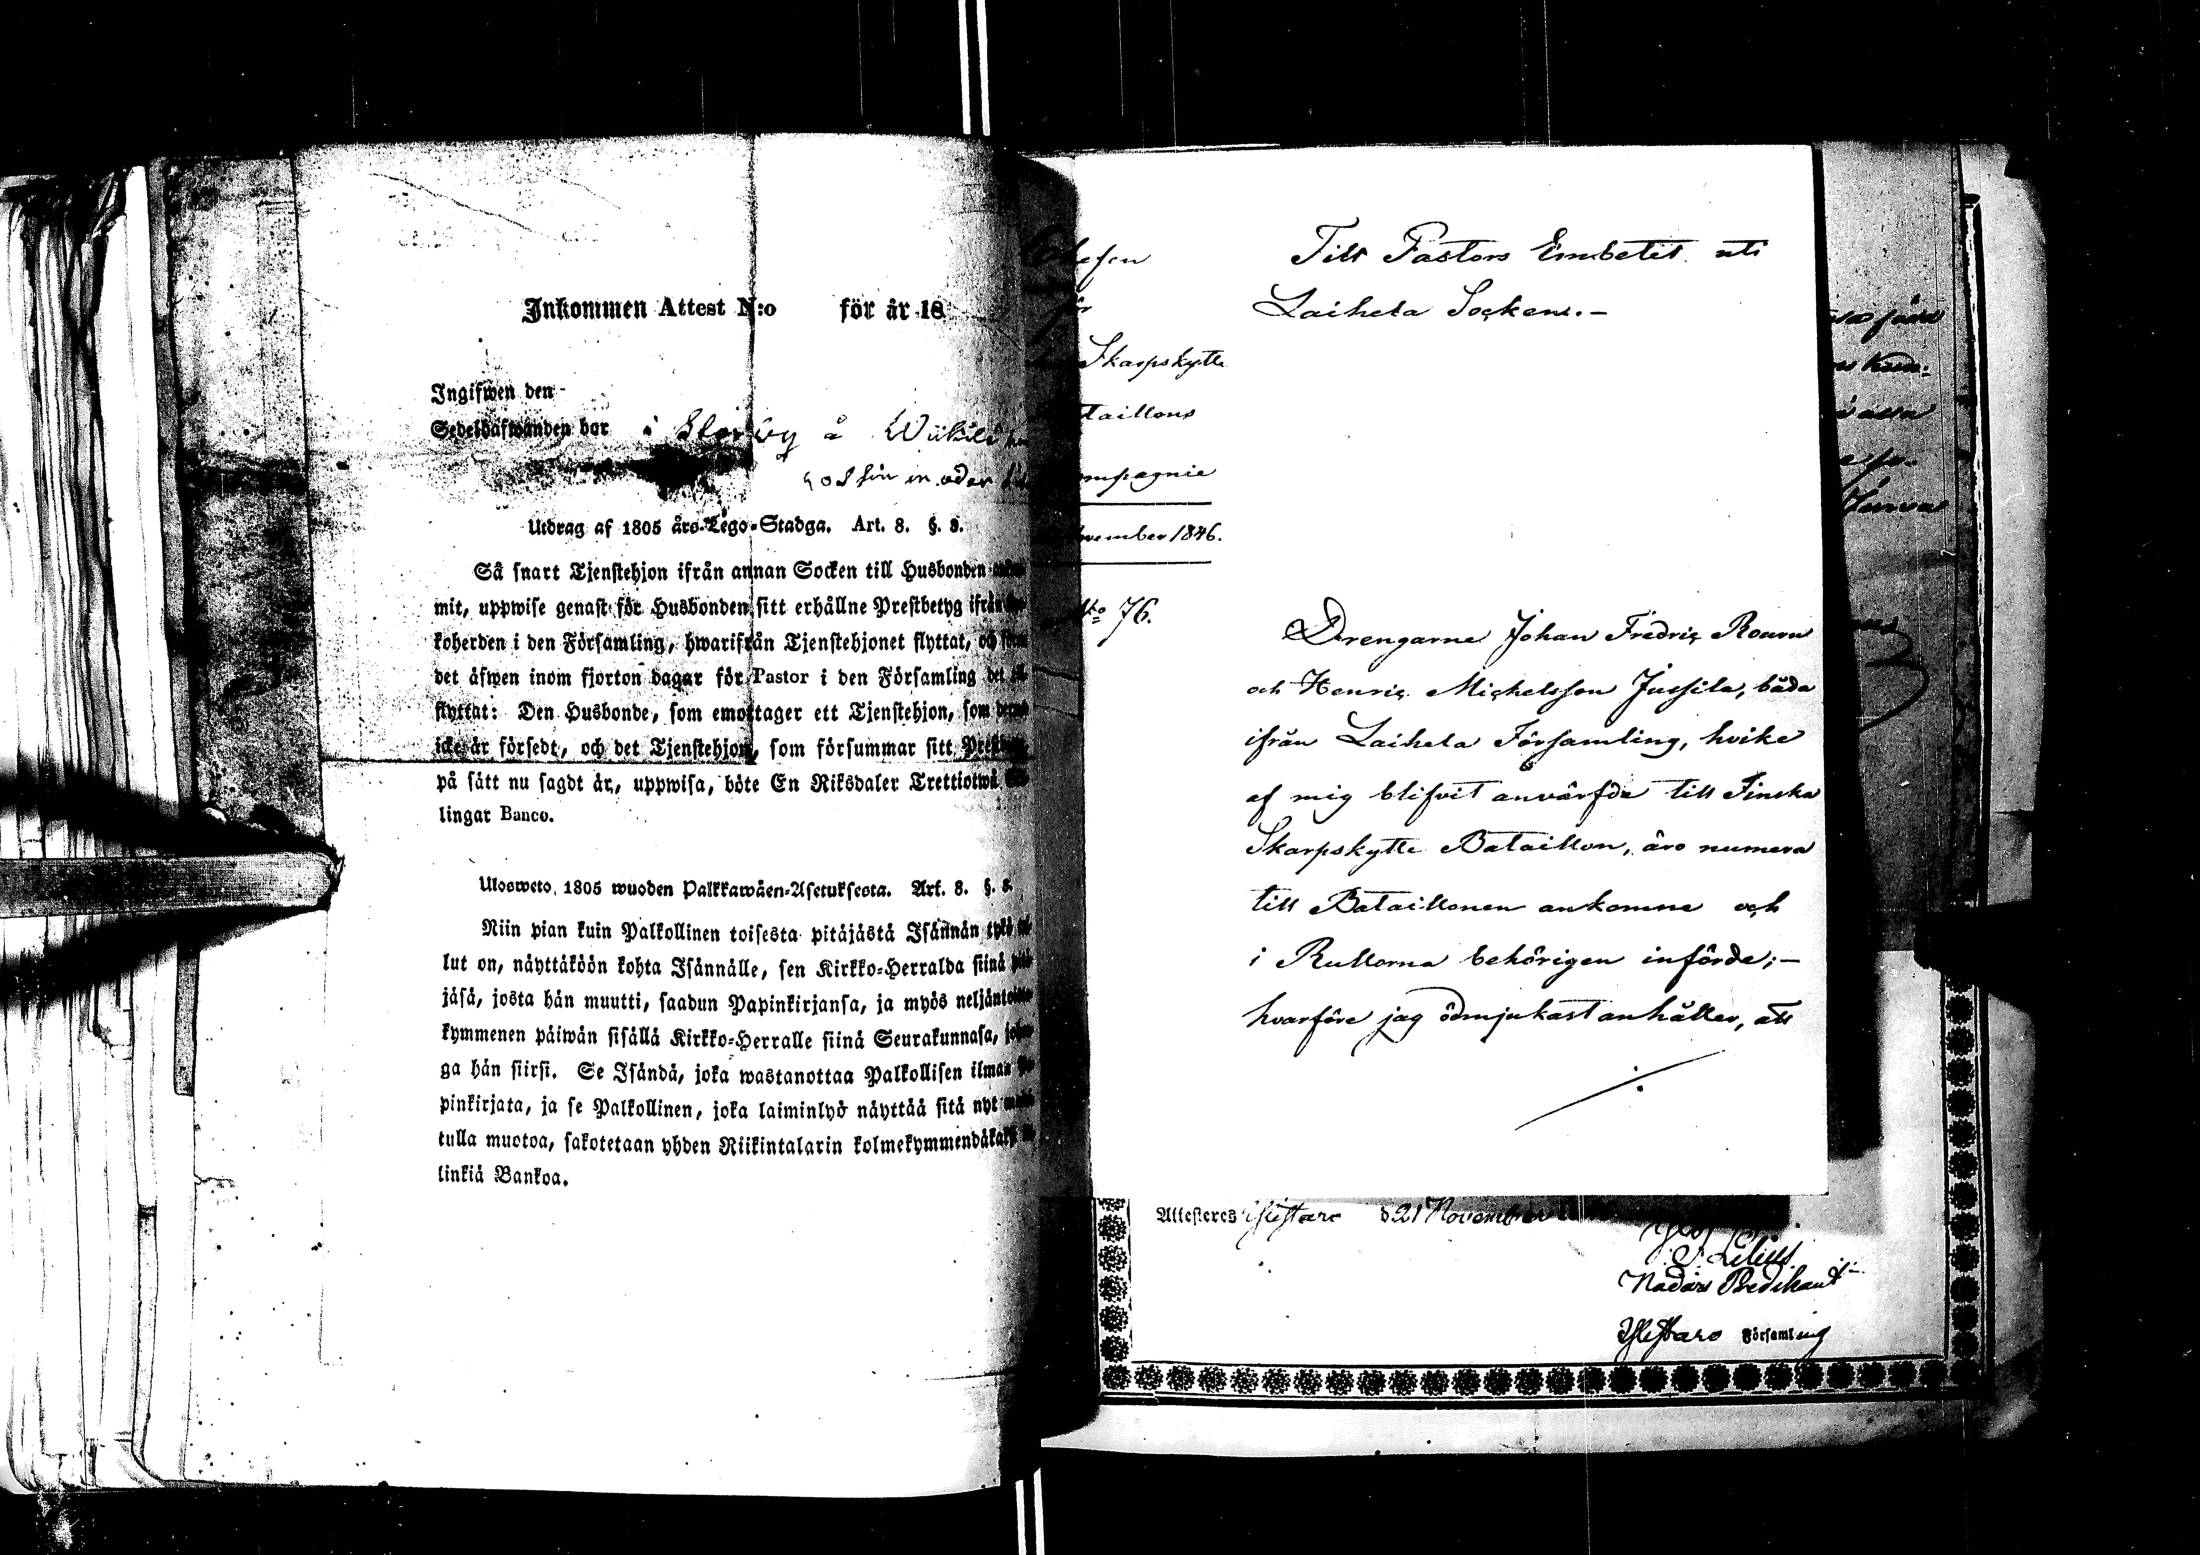 Inkommen Attest N:o för år 18
Ingifwen den
Sedelhafwanden bor i Storby å
Utdrag af 1805 års Lego-Stadga. Art. 8. §. 8.
Så snart Tjenstehjon ifrån annan Socken till Husbonden
mit, uppwise genast för Husbonden sitt erhållne Prestbetyg ifrån
koherden i den Församling, hwarifrån Tjenstehjonet flyttat, och
det äfwen inom fjorton dagar för Pastor i den Församling det
flyttat: Den Husbonde, som emottager ett Tjenstehjon, som
icke är försedt, och det Tjenstehjon, som försummar sitt
på sätt nu sagdt är, uppwisa, böte En Riksdaler Trettiotwå
lingar Banco.
Ulosweto, 1805 wuoden Palkkawäen-Asetuksesta. Art. 8. §. 8.
Niin pian kuin Palkollinen toisesta pitäjästä Isännän tykö
lut on, näyttäköön kohta Isännälle, sen Kirkko-Herralda siinä
jäsä, josta hän muutti, saadun Papinkirjansa, ja myös neljäntoista
kymmenen päiwän sisällä Kirkko-Herralle siinä Seurakunnasa,
ga hän siirsi. Se Isändä, joka wastanottaa Palkollisen ilman
pinkirjata, ja se Palkollinen, joka laiminlyö näyttää sitä nyt
tulla muotoa, sakotetaan yhden Riikintalarin kolmekymmendäkaksi
linkiä Bankoa.
Chefen
för
Skarpskytte
taillons
ompagnie
vember 1846.
No 76.
Till Pastors Embetet uti
Laihela Socken.-
Drengarne Johan Fredric
och Henric Michelsson Jussila, båda
ifrån Laihela Församling, hvike
af mig blifvit anvärfda till Finska
Skarpskytte Bataillon, äro numera
till Bataillonen ankomne och
i Rullorna behörigen införde;-
hvarföre jag ödmjukast anhåller, att
Attesteres Ylistaro d. 21 November
Lilius
Nådårs Predikant
Ylistaro Församling